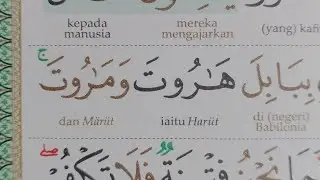 (yang) kafi
mereka
mengajarkan
kepada
manusia
بِبَابِلَ هَٰرُوتَ وَمَٰرُوتَ ۚ
di (negeri)
Babilonia
iaitu Harūt
dan Mārūt
نَحْنُ فِتْنَةٌ فَلَا تَكْفُرْ